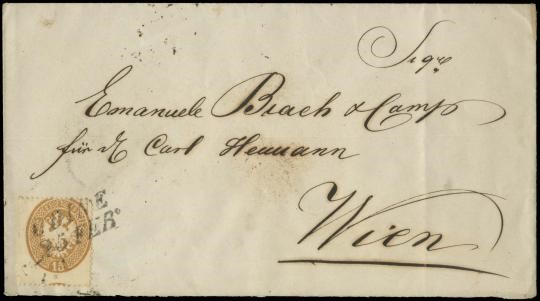 Sigre
Emanuele Brach & Comp
für H Carl Heumann
Wien
UDINE
25 FEB.
15